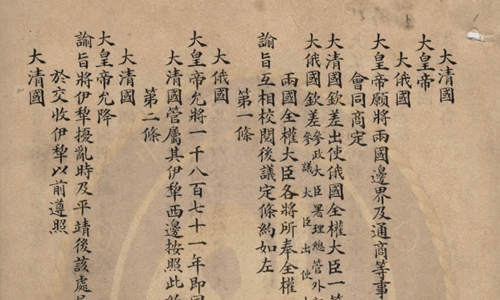 大清國
大皇帝
大俄國
大皇帝願將兩國邊界及通商等事
會同商定
大清國欽差出使俄國全權大臣一等
大俄國欽差參政大臣署理總管外部
參議大臣出使
兩國全權大臣各將所奉全權
諭旨互相校閱後議定條約如左
第一條
大俄國
大皇帝允將一千八百七十一年即同
大清國管屬其伊犁西邊按照此約
第二條
大清國
大皇帝允降
諭旨將伊犁擾亂時及平靖後該處
於交收伊犁以前遵照
大清國